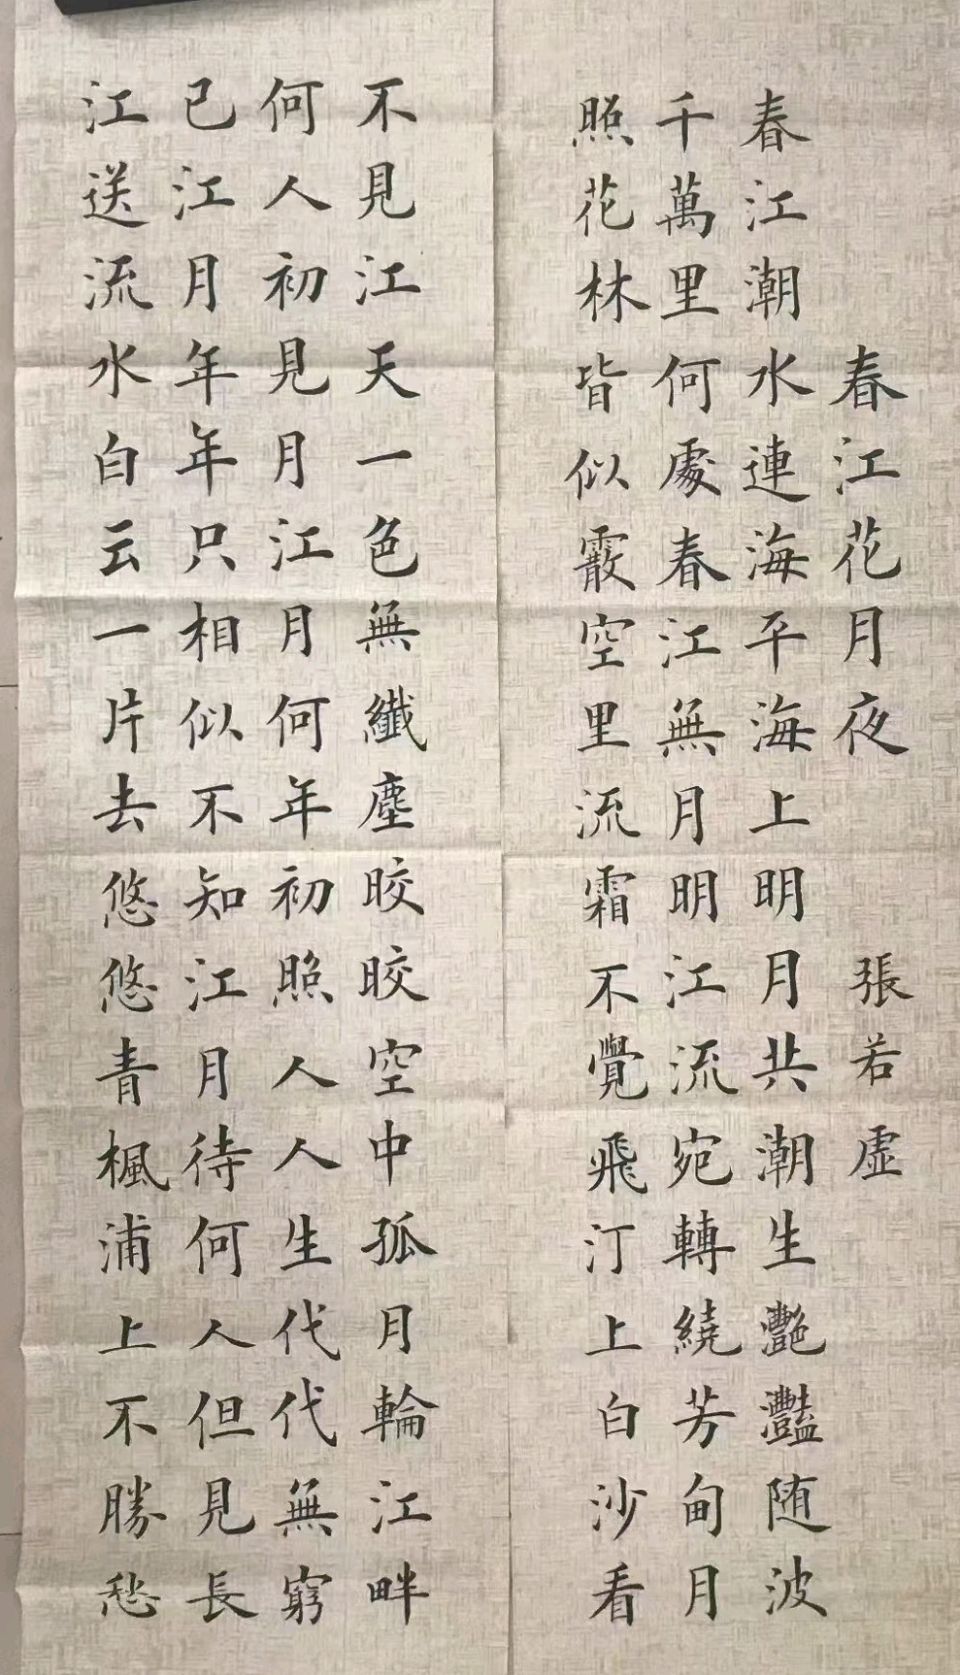 春江花月夜 張若虛
春江潮水連海平海上明月共潮生灩灩随波
千萬里何處春江無月明江流宛轉繞芳甸月
照花林皆似霰空里流霜不覺飛汀上白沙看
不見江天一色無纖塵皎皎空中孤月輪江畔
何人初見月江月何年初照人人生代代無窮
已江月年年只相似不知江月待何人但見長
江送流水白云一片去悠悠青楓浦上不勝愁